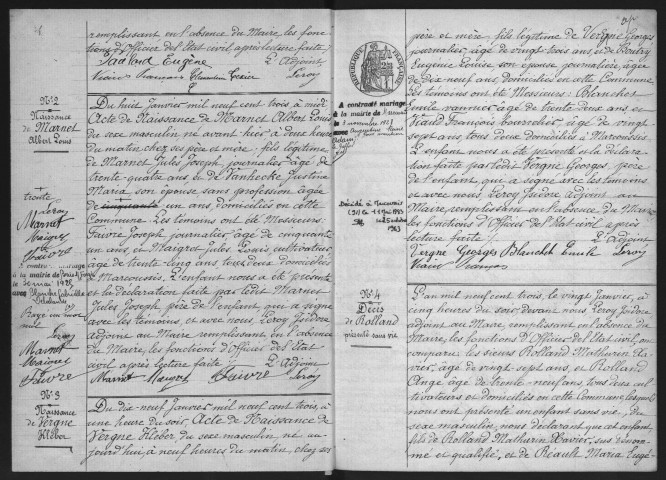 remplissant en l'absence du Maire les fonc
tions d'Officier de l'Etat civil, après lecture faite,
Gaillard Eugène L'Adjoint
Viaud François Leroy
N° 2
Naissance
de Marnet
Albert Louis
Du huit Janvier mil neuf cent trois, à midi
Acte de Naissance de Marnet Albert Louis
du sexe masculin né avant hier à deux heures
du matin chez ses père et mère; fils légitime
de Marnet Jules Joseph journalier âgé de
trente quatre ans et de Vanhecke Justine
Maria, son épouse sans profession, âgée
de cinquante un ans domiciliés en cette
Commune. Les témoins ont été Messieurs:
Faivre Joseph journalier âgé de cinquante
un ans et Maigret Jules Louis cultivateur,
âgé de trente-cinq ans tous deux domiciliés
à Marcoussis. L'enfant nous a été présenté
et la déclaration faite par ledit Marnet
Jules Joseph père de l'enfant qui a signé
avec les témoins, et avec nous, Leroy Isidore
adjoint au Maire remplissant en l'absence
du Maire, les fonctions d'Officier de l'Etat civil
après lecture faite. L'Adjoint
Marnet Maigret Faivre Leroy
trente
Leroy
Marnet
Maigret
Faivre
a contracté mariage
à la mairie de
le 3 mai 1928
avec Blanche Gabrielle
Rayé un mot
nul
Leroy
Marnet
Maigret
Faivre
N° 3
Naissance
de Vergne
Kléber
Du dix-neuf Janvier mil neuf cent trois, à
une heure du soir, Acte de Naissance de
Vergne Kléber, du sexe masculin né au-
jourd'hui, à neuf heures du matin, chez ses
père et mère, fils légitime de Vergne Georges
journalier, âgé de vingt trois ans, et de Boutry
Eugénie Louise, son épouse, journalière, âgée
de dix neuf ans, domiciliés en cette Commune
Les témoins ont été Messieurs: Blanchet
Emile vannier âgé de trente deux ans, et
Viaud François bourrelier, âgé de vingt
sept ans, tous deux domiciliés à Marcoussis.
L'enfant nous a été présenté et la décla
ration faite par ledit Vergne Georges, père
de l'enfant, qui a signé avec les témoins
et avec nous, Leroy Isidore adjoint au
Maire, remplissant en l'absence du Maire
les fonctions d'Officier de l'Etat civil, après
lecture faite. L'adjoint
Vergne Georges Blanchet Emile Leroy
Viaud François
RÉPUBLIQUE FRANÇAISE
A contracté mariage
à la mairie de
le novembre 1927
avec Augustine Marie
Décédé à
le 25 octobre
1963
N° 4
Décès
de Rolland
présenté sans vie
L'an mil neuf cent trois, le vingt Janvier, à
cinq heures du soir, devant nous Leroy Isidore
adjoint au Maire, remplissant en l'absence du
Maire, les fonctions d'Officier de l'Etat civil, ont
comparu les sieurs Rolland Mathurin Xa-
vier, âgé de vingt-sept ans, et Rolland
Ange âgé de trente-neuf ans, tous deux cul
tivateurs et domiciliés en cette Commune, lesquels
nous ont présenté un enfant sans vie, du
sexe masculin, nous déclarant que cet enfant,
fils de Rolland Mathurin Xavier, sus dénom-
mé et qualifié, et de Réault Maria Eugé-